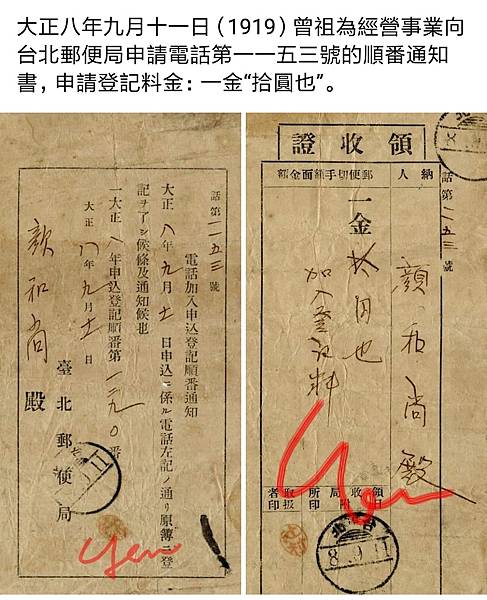 大正八年九月十一日（1919）曾祖為經營事業向
台北郵便局申請電話第一一五三號的順番通知
書，申請登記料金：一金“拾圓也”。
話第一一五三號
電話加入申込登記順番通知
大正八年九月十一日申込ニ係ル電話左記ノ通リ原簿ニ登
記ヲ了シ候條及通知候也
一大正八年申込登記順番第 番
大正八年九月十一日
臺北郵便局
顏和尚殿
Yen
領收證
話第一一五三號
納人
顏和尚殿
郵便切手額面金額
一金拾円也
加入登記料
領收局所
取扱者印
Yen
8.9.11